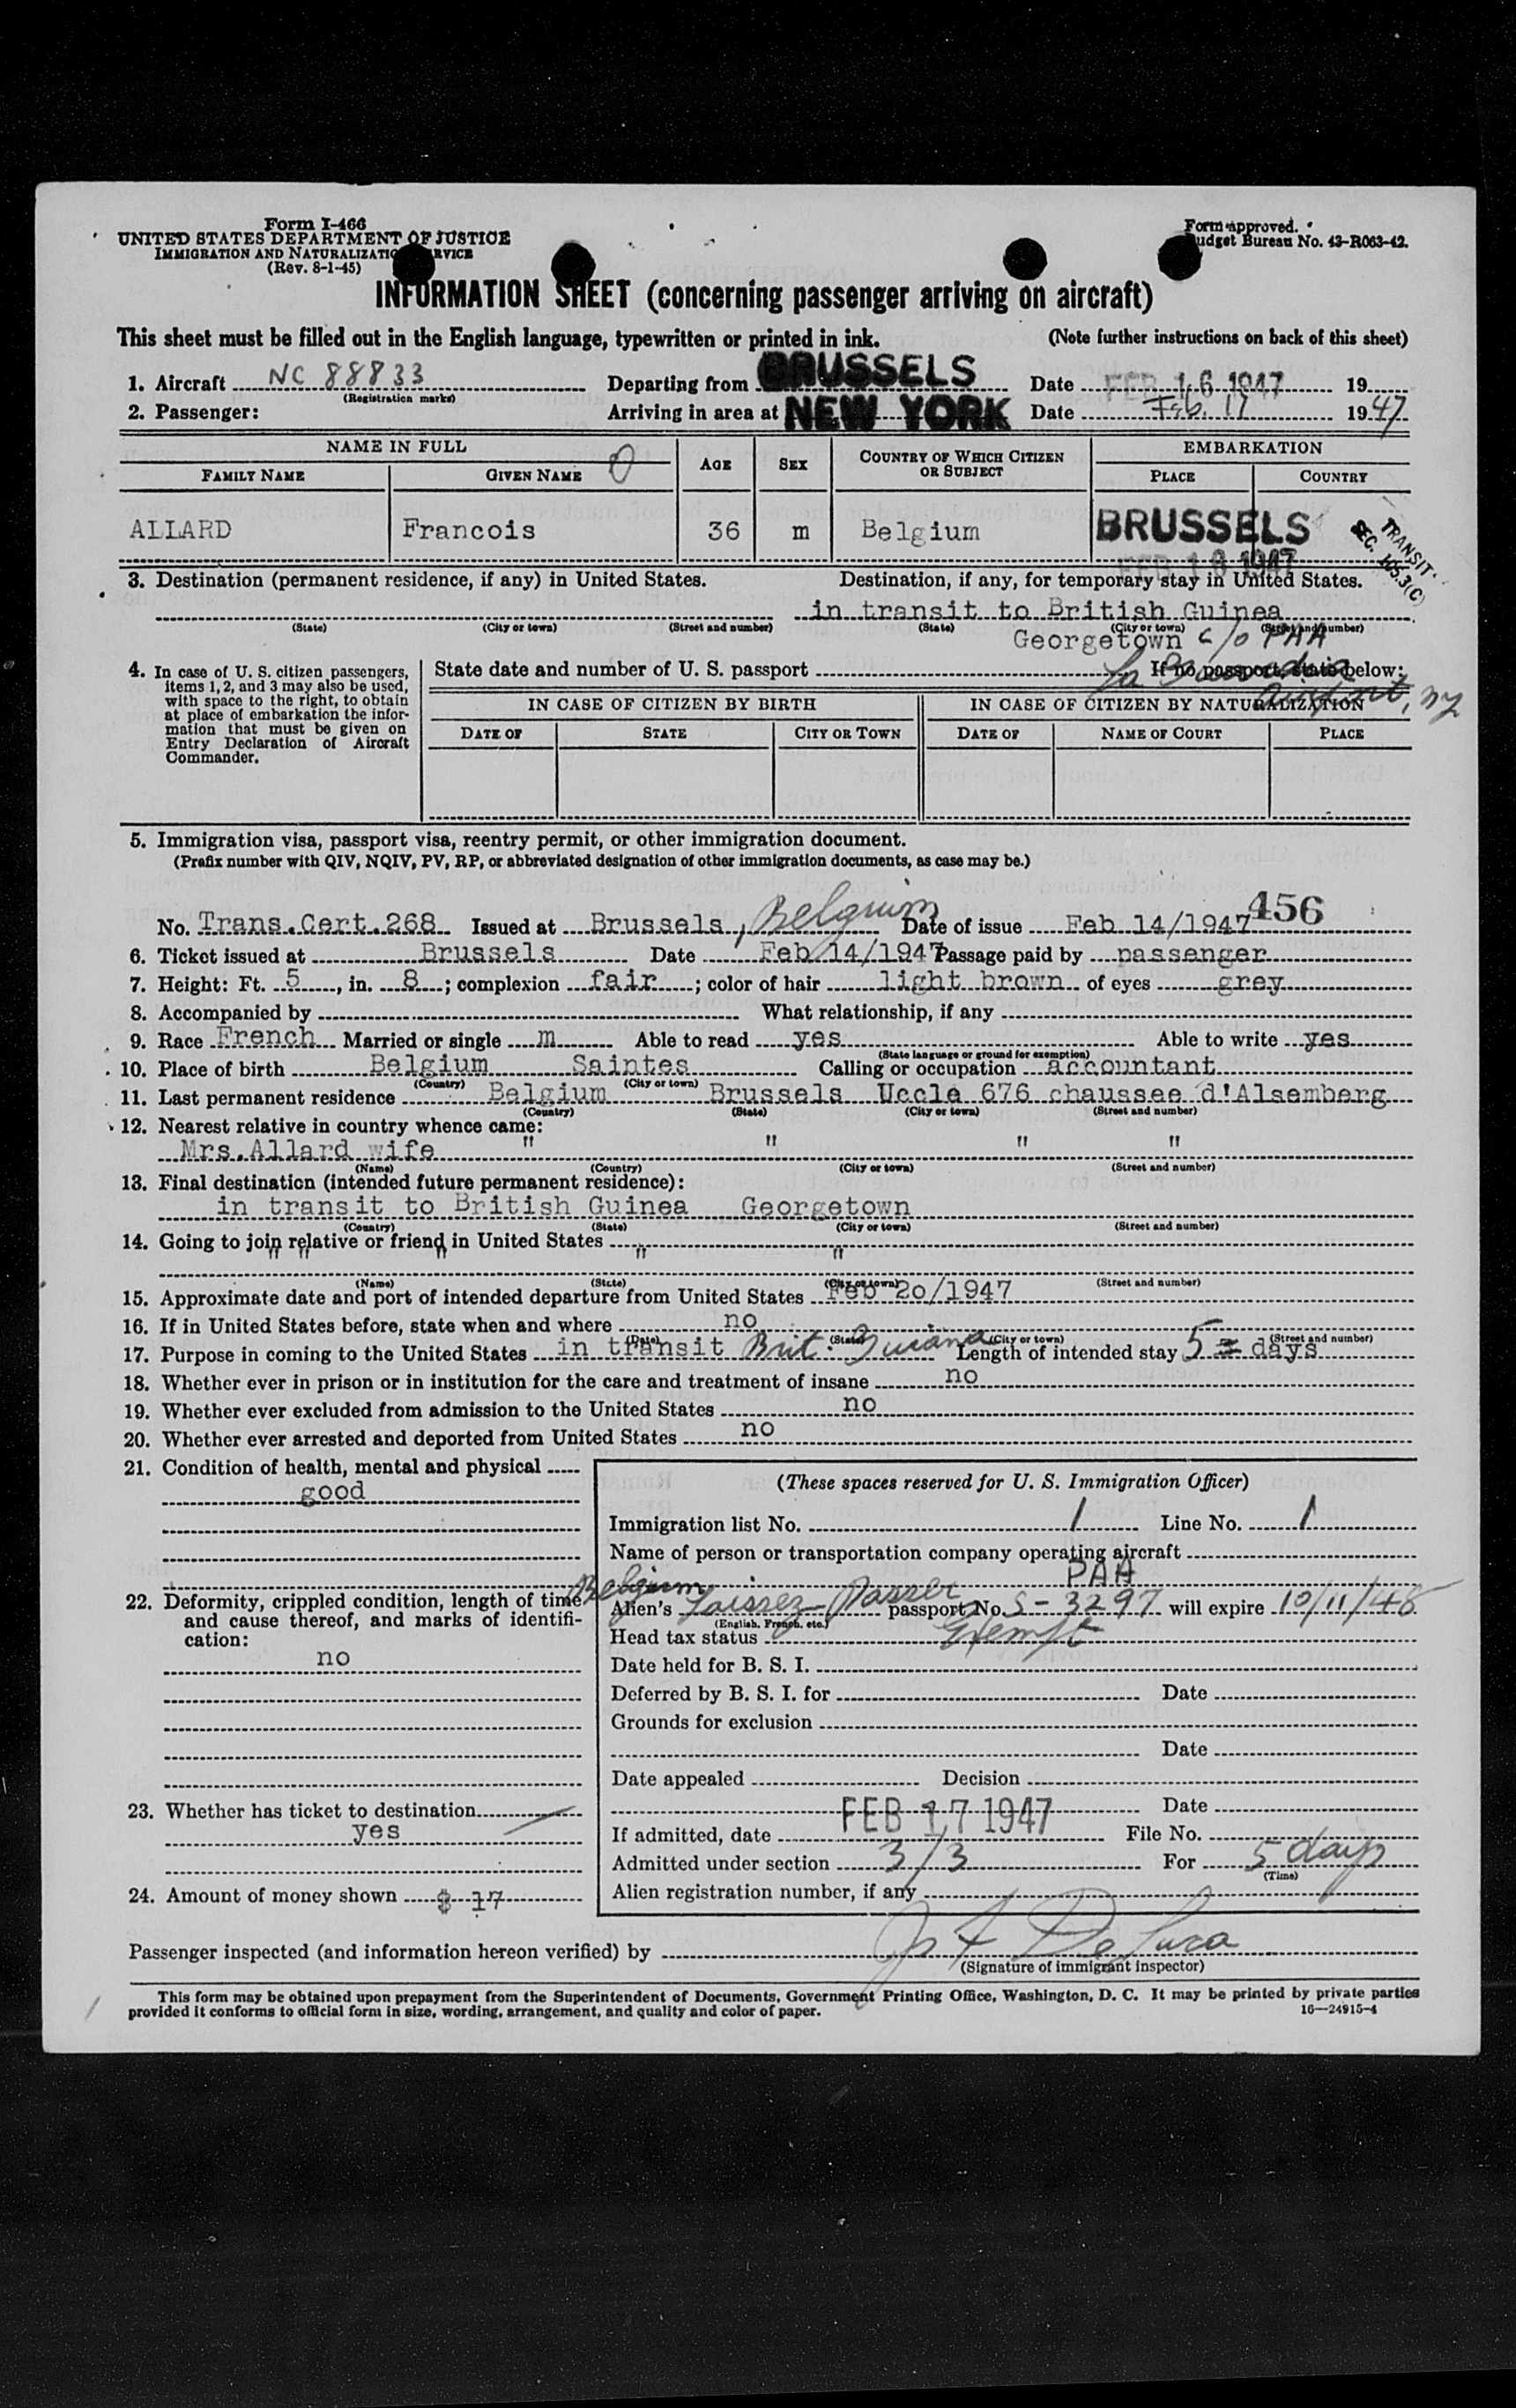 Form I-466
UNITED STATES DEPARTMENT OF JUSTICE
IMMIGRATION AND NATURALIZATION SERVICE
(Rev. 8-1-45)
Form approved.
Budget Bureau No. 43-R063-42.
INFORMATION SHEET (concerning passenger arriving on aircraft)
This sheet must be filled out in the English language, typewritten or printed in ink. (Note further instructions on back of this sheet)
1. Aircraft NC 88833 Departing from BRUSSELS Date FEB 16 1947 19
(Registration marks)
2. Passenger: Arriving in area at NEW YORK Date Feb. 17 1947
NAME IN FULL AGE SEX COUNTRY OF WHICH CITIZEN OR SUBJECT EMBARKATION
FAMILY NAME GIVEN NAME PLACE COUNTRY
ALLARD Francois 36 m Belgium BRUSSELS
FEB 16 1947
TRANSIT
SEC. 105.3(C)
3. Destination (permanent residence, if any) in United States. Destination, if any, for temporary stay in United States.
in transit to British Guinea
(State) (City or town) (Street and number) (State) (City or town) (Street and number)
Georgetown c/o PAA
Airport, NY
4. In case of U. S. citizen passengers, items 1, 2, and 3 may also be used, with space to the right, to obtain at place of embarkation the information that must be given on Entry Declaration of Aircraft Commander.
State date and number of U. S. passport If no passport, state below:
IN CASE OF CITIZEN BY BIRTH IN CASE OF CITIZEN BY NATURALIZATION
DATE OF STATE CITY OR TOWN DATE OF NAME OF COURT PLACE
5. Immigration visa, passport visa, reentry permit, or other immigration document.
(Prefix number with QIV, NQIV, PV, RP, or abbreviated designation of other immigration documents, as case may be.)
456
No. Trans.Cert.268 Issued at Brussels, Belgium Date of issue Feb 14/1947
6. Ticket issued at Brussels Date Feb 14/1947 Passage paid by passenger
7. Height: Ft. 5, in. 8; complexion fair; color of hair light brown of eyes grey
8. Accompanied by What relationship, if any
9. Race French Married or single m Able to read yes Able to write yes
(State language or ground for exemption)
10. Place of birth Belgium Saintes Calling or occupation accountant
(Country) (City or town)
11. Last permanent residence Belgium Brussels Uccle 676 chaussee d'Alsemberg
(Country) (State) (City or town) (Street and number)
12. Nearest relative in country whence came:
Mrs.Allard wife " " " "
(Name) (Country) (City or town) (Street and number)
13. Final destination (intended future permanent residence):
in transit to British Guinea Georgetown
(Country) (State) (City or town) (Street and number)
14. Going to join relative or friend in United States
" " " " "
(Name) (State) (City or town) (Street and number)
15. Approximate date and port of intended departure from United States Feb 20/1947
16. If in United States before, state when and where no
(Date) (State) (City or town) (Street and number)
17. Purpose in coming to the United States in transit Brit. Guiana Length of intended stay 5 days
18. Whether ever in prison or in institution for the care and treatment of insane no
19. Whether ever excluded from admission to the United States no
20. Whether ever arrested and deported from United States no
21. Condition of health, mental and physical
good
22. Deformity, crippled condition, length of time and cause thereof, and marks of identification:
no
23. Whether has ticket to destination
yes
24. Amount of money shown $ 17
(These spaces reserved for U. S. Immigration Officer)
Immigration list No. 1 Line No. 1
Name of person or transportation company operating aircraft
PAA
Belgium
Alien's Laissez-Passer passport No. S-3297 will expire 10/11/48
(English, French, etc.)
Head tax status Exempt
Date held for B. S. I.
Deferred by B. S. I. for Date
Grounds for exclusion
Date
Date appealed Decision
Date
If admitted, date FEB 17 1947 File No.
Admitted under section 3/3 For 5 days
(Time)
Alien registration number, if any
Passenger inspected (and information hereon verified) by
(Signature of immigrant inspector)
This form may be obtained upon prepayment from the Superintendent of Documents, Government Printing Office, Washington, D. C. It may be printed by private parties
provided it conforms to official form in size, wording, arrangement, and quality and color of paper. 16—24915-4